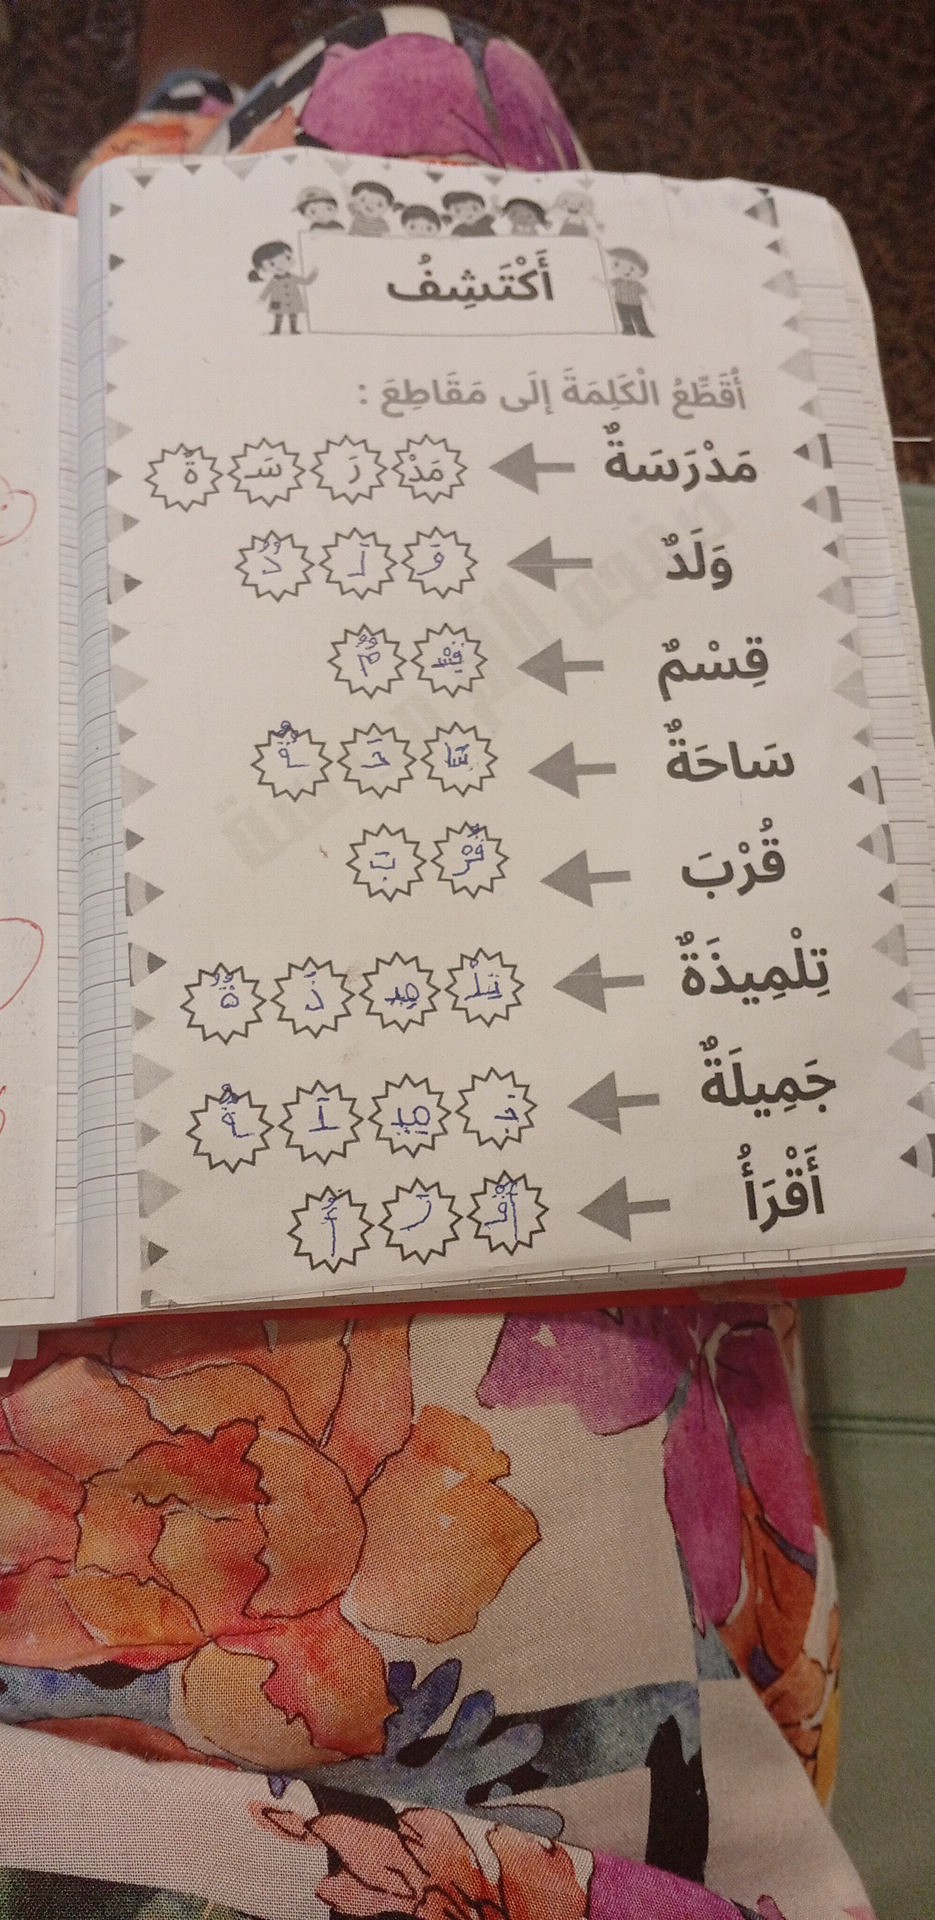 أَكْتَشِفُ
أُقَطِّعُ الْكَلِمَةَ إِلَى مَقَاطِعَ :
مَدْرَسَةٌ مَدْ رَ سَـ ةٌ
وَلَدٌ وَ لَـ دٌ
قِسْمٌ قِسْـ مٌ
سَاحَةٌ سَا حَـ ـةٌ
قُرْبَ قُرْ بَ
تِلْمِيذَةٌ تِلْـ مِيـ ذَ ةٌ
جَمِيلَةٌ جَـ مِيـ لَـ ـةٌ
أَقْرَأُ أَقْـ رَ أُ